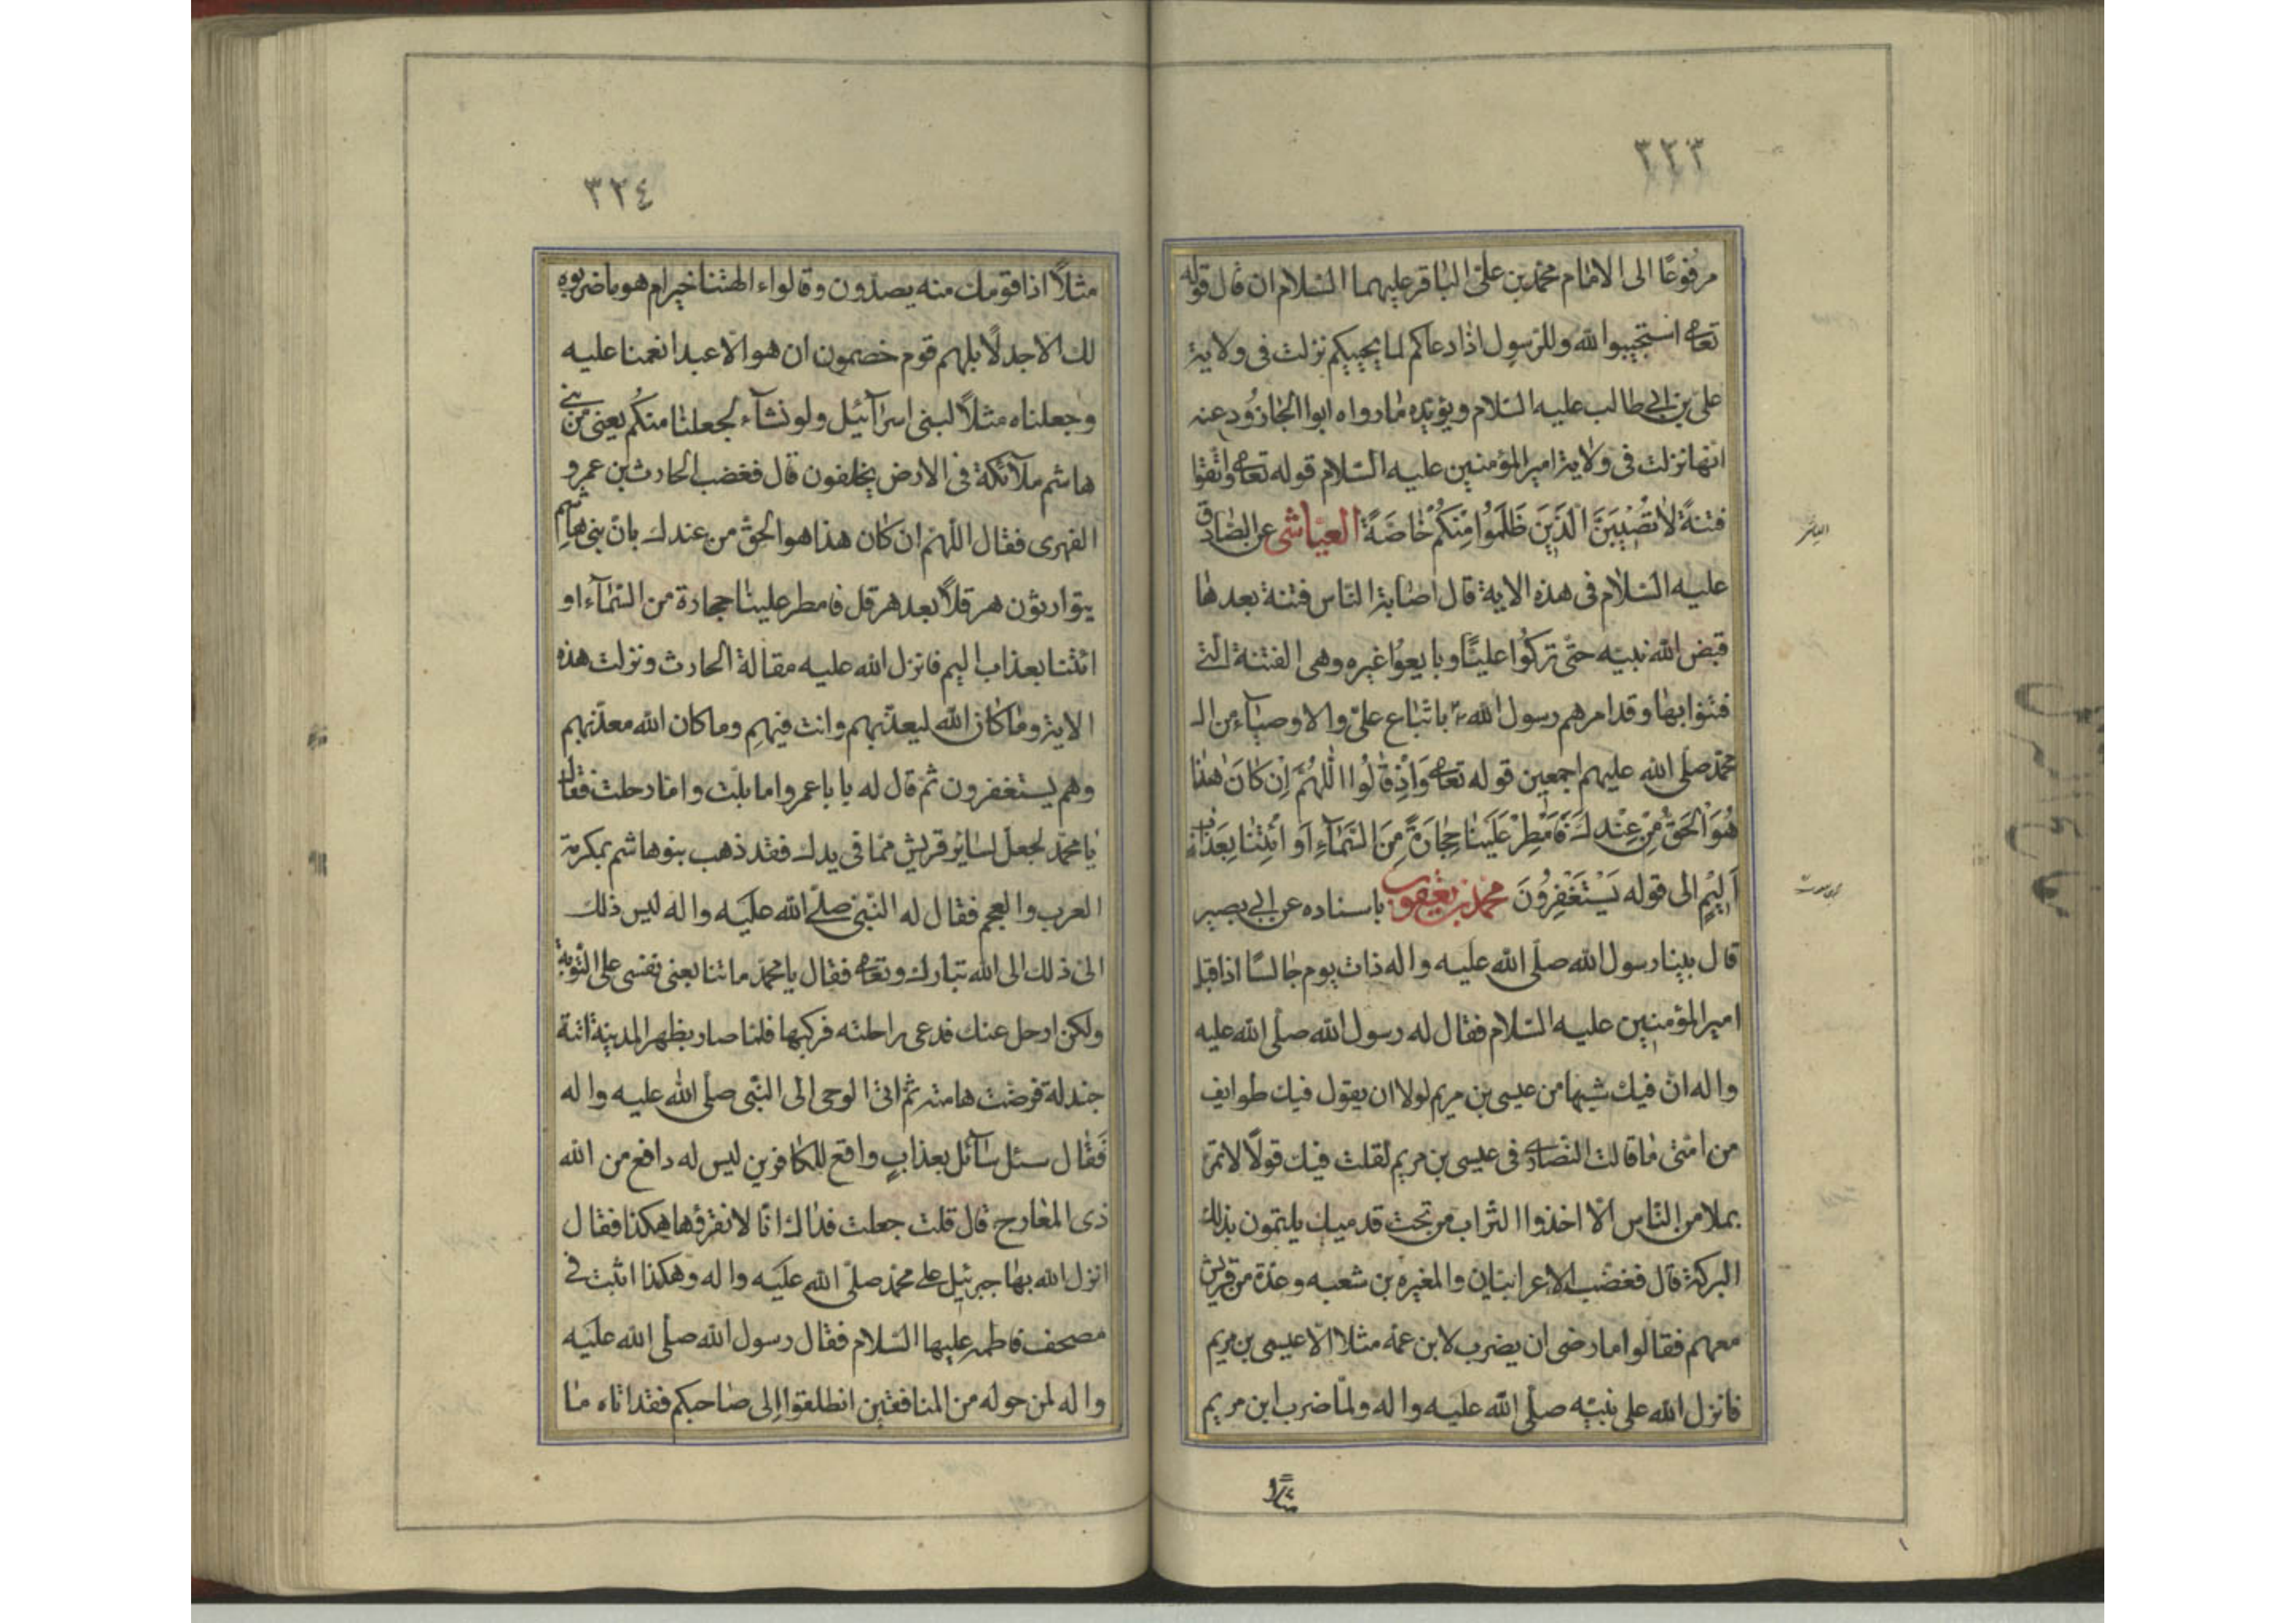 ٣٢٣
مرفوعًا الى الامام محمّد بن علىّ الباقر عليهما السّلام ان قال قوله
تعالى استجيبوا لله وللرّسول اذا دعاكم لما يحييكم نزلت فى ولاية
علىّ بن ابى طالب عليه السّلام ويؤيّده ما رواه ابوا الجارود عنه
انّها نزلت فى ولاية امير المؤمنين عليه السّلام قوله تعالى واتّقوا
فتنةً لا تُصيبَنَّ الّذينَ ظَلَمُوا مِنكُم خاصّةً العيّاشى عن الصّادق
عليه السّلام فى هذه الاية قال اصابة النّاس فتنة بعد ها
قبض الله نبيّه حتّى تركوا عليًّا وبايعوا غيره وهى الفتنة الّتى
فتنوا بها وقد امرهم رسول الله ص باتّباع علىّ والاوصيآء من ال
محمّد صلّى الله عليهم اجمعين قوله تعالى وَاِذ قالُوا اللّهُمَّ اِن كانَ هٰذا
هُوَ الحَقُّ مِن عِندِكَ فَامطِر عَلَينا حِجارَةً مِنَ السَّمآءِ اَو ائتِنا بِعَذابٍ
اَليمٍ الى قوله يَستَغفِرُونَ محمّد بن يعقوب باسناده عن ابى بصير
قال بينا رسول الله صلّى الله عليه واله ذات يوم جالسًا اذ اقبل
امير المؤمنين عليه السّلام فقال له رسول الله صلّى الله عليه
واله انّ فيك شبها من عيسى بن مريم لولا ان يقول فيك طوايف
من امّتى ما قالت النّصارى فى عيسى بن مريم لقلت فيك قولًا لا تمرّ
بملا من النّاس الّا اخذوا التّراب من تحت قدميك يلتمون بذلك
البركة قال فغضب الاعرابيان والمغيره بن شعبه وعدّة من قريش
معهم فقالوا ما رضى ان يضرب لابن عمّه مثلا الّا عيسى بن مريم
فانزل الله على نبيّه صلّى الله عليه واله ولمّا ضرب ابن مريم
مثلًا
٣٢٤
مثلًا اذا قومك منه يصدّون وقالواء الهتنا خير ام هو ما ضربوه
لك الّا جدلًا بل هم قوم خصمون ان هو الّا عبد انعمنا عليه
وجعلناه مثلًا لبنى اسرآئيل ولو نشآء لجعلنا منكم يعنى من بنى
هاشم ملآئكة فى الارض يخلفون قال فغضب الحارث بن عمرو
الفهرى فقال اللّهمّ ان كان هذا هو الحقّ من عندك بانّ بنى هاشم
يتوارثون هرقلًا بعد هرقل فامطر علينا حجارة من السّمآء او
ائتنا بعذاب اليم فانزل الله عليه مقالة الحارث ونزلت هذه
الاية وما كان الله ليعذّبهم وانت فيهم وما كان الله معذّبهم
وهم يستغفرون ثمّ قال له يا با عمرو اما تبت وامّا رحلت فقال
يا محمّد تجعل لسائر قريش ممّا فى يدك فقد ذهب بنو هاشم بمكرمة
العرب والعجم فقال له النّبىّ صلّى الله عليه واله ليس ذلك
الىّ ذلك الى الله تبارك وتعالى فقال يا محمّد ما تتابعنى نفسى على التّوبة
ولكن ارحل عنك فدعى براحلته فركبها فلمّا صار بظهر المدينة اتته
جندلة فرضّت هامته ثمّ اتى الوحى الى النّبى صلّى الله عليه واله
فقال سئل سآئل بعذابٍ واقع للكافرين ليس له دافع من الله
ذى المعارج قال قلت جعلت فداك انّا لا نقرؤها هكذا فقال
انزل الله بها جبرئيل على محمّد صلّى الله عليه واله وهكذا اثبت فى
مصحف فاطمه عليها السّلام فقال رسول الله صلّى الله عليه
واله لمن حوله من المنافقين انطلقوا الى صاحبكم فقد اتاه ما